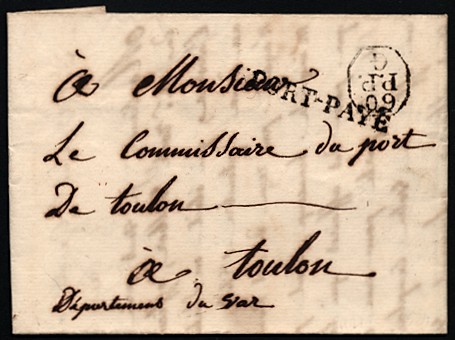 à Monsieur
PORT-PAYÉ
D
P.P.
60
Le Commissaire du port
De toulon
à toulon
Département du var